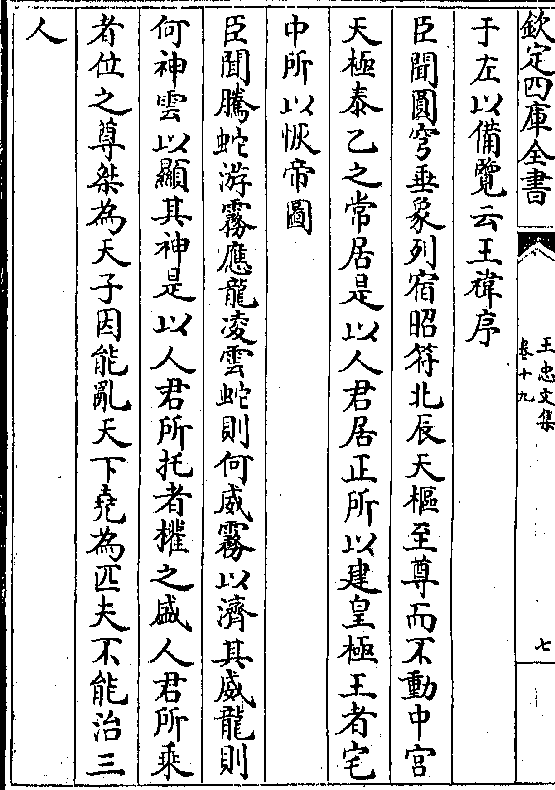 欽定四庫全書
王忠文集
卷十九
七
于左以備覽云王褘序
臣聞圓穹垂象列宿昭符北辰天樞至尊而不動中宮
天極泰乙之常居是以人君居正所以建皇極王者宅
中所以恢帝圖
臣聞騰蛇游霧應龍凌雲蛇則何威霧以濟其威龍則
何神雲以顯其神是以人君所托者權之盛人君所乘
者位之尊桀為天子因能亂天下堯為匹夫不能治三
人